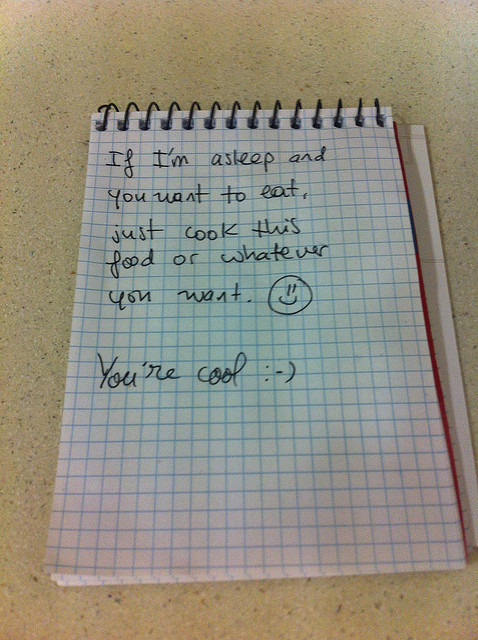 If I'm asleep and
you want to eat,
just cook this
food or whatever
you want.
You're cool :-)